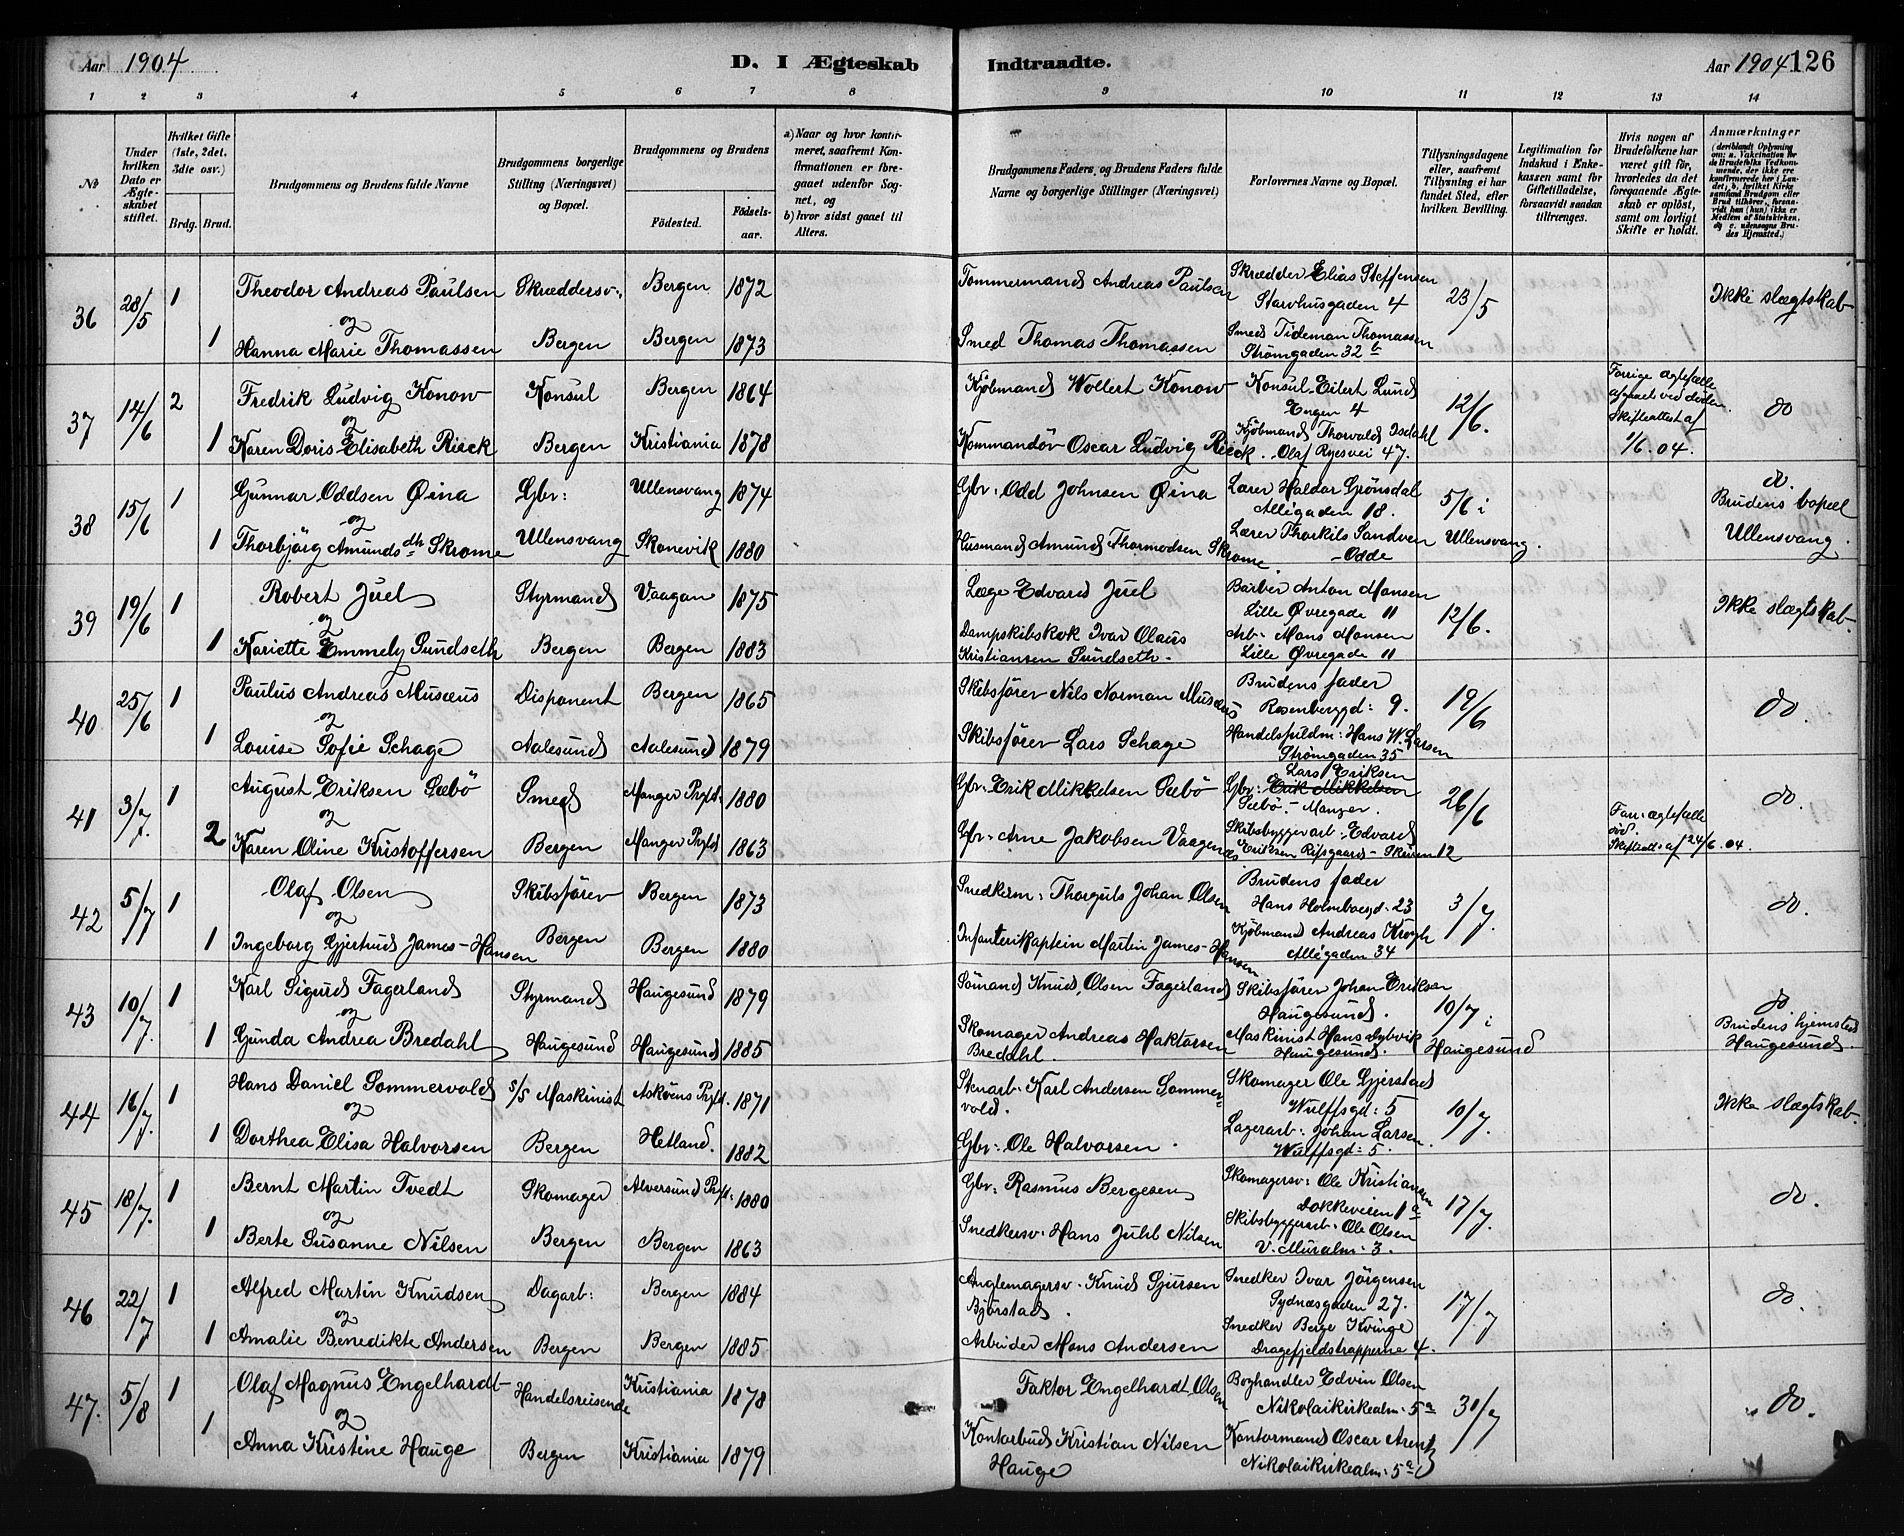 Aar 1904
D. I Ægteskab Indtraadte.
Aar 1904. 126
1 2 3 4 5 6 7 8 9 10 11 12 13 14
№
Under hvilken Dato er Ægteskabet stiftet.
Hvilket Gifte (1ste, 2det, 3die osv.)
Brdg. Brud.
Brudgommens og Brudens fulde Navne
Brudgommens borgerlige Stilling (Næringsvei) og Bopæl.
Brudgommens og Brudens
Fødested. Fødselsaar.
a) Naar og hvor konfirmeret, saafremt Konfirmationen er foregaaet udenfor Sognet, og
b) hvor sidst gaaet til Alters.
Brudgommens Faders, og Brudens Faders fulde Navne og borgerlige Stillinger (Næringsvei)
Forlovernes Navne og Bopæl.
Tillysningsdagene eller, saafremt Tillysning ei har fundet Sted, efter hvilken Bevilling.
Legitimation for Indskud i Enkekassen samt for Giftetilladelse, forsaavidt saadan tiltrænges.
Hvis nogen af Brudefolkene har været gift før, hvorledes da det foregaaende Ægteskab er opløst, samt om lovligt Skifte er holdt.
Anmærkninger (deriblandt Oplysning om: a. Vakcination for de Brudefolks Vedkommende, der ikke ere konfirmerede her i Landet; b. hvilket Kirkesamfund Brudgom eller Brud tilhører, forsaavidt han (hun) ikke er Medlem af Statskirken, og c. udensogns Brudes Hjemsted.)
36 28/5 1 Theodor Andreas Paulsen Skræddersv. Bergen 1872 Tommermand Andreas Paulsen Skrædder Elias Steffensen Starvhusgaden 4 23/5 Ikke slægtskab
og
1 Hanna Marie Thomassen Bergen Bergen 1873 Smed Thomas Thomassen Smed Tideman Thomassen Strømgaden 32 b
37 14/6 2 Fredrik Ludvig Konow Konsul Bergen 1864 Kjöbmand Wollert Konow Konsul Eilert Lund Engen 4 12/6. Forrige ægtefælle afgaaet ved døden. Skifteattest af 1/6.04. do
og
1 Karen Doris Elisabeth Rieck Bergen Kristiania 1878 Kommandör Oscar Ludvig Rieck. Kjöbmand Thorvald Isdahl Olaf Ryesvei 47.
38 15/6 1 Gunnar Oddsen Øina Gbr: Ullensvang 1874 Gbr. Odd Johnsen Øina Lærer Haldor Grönsdal Allégaden 18. 5/6 i Ullensvang. do. Brudens bopæl Ullensvang.
og
1 Thorbjörg Amundsdh Skrome Ullensvang Skonevik 1880 Husmand Amund Thormodsen Skrome. Lærer Thorkils Sandven Odde
39 19/6 1 Robert Juel Styrmand Vaagan 1875 Læge Edvard Juel Barber Anton Monsen Lille Øvregade 11 12/6. Ikke slægtskab.
og
1 Kariette Emmely Sundseth Bergen Bergen 1883 Dampskibskok Ivar Olaus Kristiansen Sundseth. Arb. Mons Monsen Lille Øvregade 11
40 25/6 1 Paulus Andreas Musæus Disponent Bergen 1865 Skibsfører Nils Norman Musæus Brudens fader Rosenberggd: 9. 19/6 do.
og
1 Louise Sofie Schage Aalesund Aalesund 1879 Skibsfører Lars Schage Handelsfuldm: Hans W. Larsen Strömgaden 35
41 3/7. 1 August Eriksen Sæbö Smed Manger Prgld. 1880 Gbr. Erik Mikkelsen Sæbö Gbr: Erik Mikkelsen Lars Eriksen Sæbö - Manger. 26/6 Forr. ægtefælle död. Skifteatt. af 24/6.04. do.
og
2 Karen Oline Kristoffersen Bergen Manger Prgld 1863 Gbr. Arne Jakobsen Vaagenes Skibsbyggerarb. Edvard Eriksen Risgaard - Skuren 12
42 5/7 1 Olaf Olsen Skibsfører Bergen 1873 Snedkerm: Thorguls Johan Olsen Brudens fader Hans Holmboegd. 23 3/7. do.
og
1 Ingeborg Gjertrud James-Hansen Bergen Bergen 1880 Infanterikaptein Martin James-Hansen Kjöbmand Andreas Krogh Allégaden 34
43 10/7. 1 Karl Sigurd Fagerland Styrmand Haugesund 1879 Sömand Knud Olsen Fagerland Skibsfører Johan Eriksen Haugesund. 10/7 i Haugesund do. Brudens hjemsted Haugesund.
og
1 Gunda Andrea Bredahl Haugesund Haugesund 1885 Skomager Andreas Haktorsen Bredahl. Maskinist Hans Haugesund.
44 16/7. 1 Hans Daniel Sommervold S/S Maskinist Askøens Prgld. 1871 Stenarb. Karl Andersen Sommervold. Skomager Ole Gjerstad Wulffsgd: 5 10/7. Ikke slægtskab.
og
1 Dorthea Elisa Halvorsen Bergen Hetland. 1882 Gbr. Ole Halvorsen Lagerarb. Johan Larsen. Wulffsgd: 5.
45 18/7. 1 Bernt Martin Tvedt Skomager Alversund Prgld. 1880 Gbr. Rasmus Bergesen Skomagersv: Ole Kristiansen Dokkeveien 1 a 17/7. do.
og
1 Berte Susanne Nilsen Bergen Bergen 1863 Snedkersv. Hans Juhl Nilsen Skibsbyggerarb. Ole Olsen V. Muralm. 3.
46 22/7 1 Alfred Martin Knudsen Dagarb: Bergen 1884 Knud Sjursen Björstad. Snedker Ivar Jörgensen Sydnæsgaden 27. 17/7 do.
og
1 Amalie Benedikte Andersen Bergen Bergen 1885 Arbeider Mons Andersen Snedker Berge Kvinge Dragefjeldstrapperne 4.
47. 5/8 1 Olaf Magnus Engelhardt Handelsreisende Kristiania 1878 Faktor Engelhardt Olsen Boghandler Edvin Olsen Nikolaikirkealm. 5 a 31/7 do.
og
1 Anna Kristine Hauge Bergen Kristiania 1879 Kontorbud Kristian Nilsen Hauge Kontormand Oscar Arentz Nikolaikirkealm: 5 a